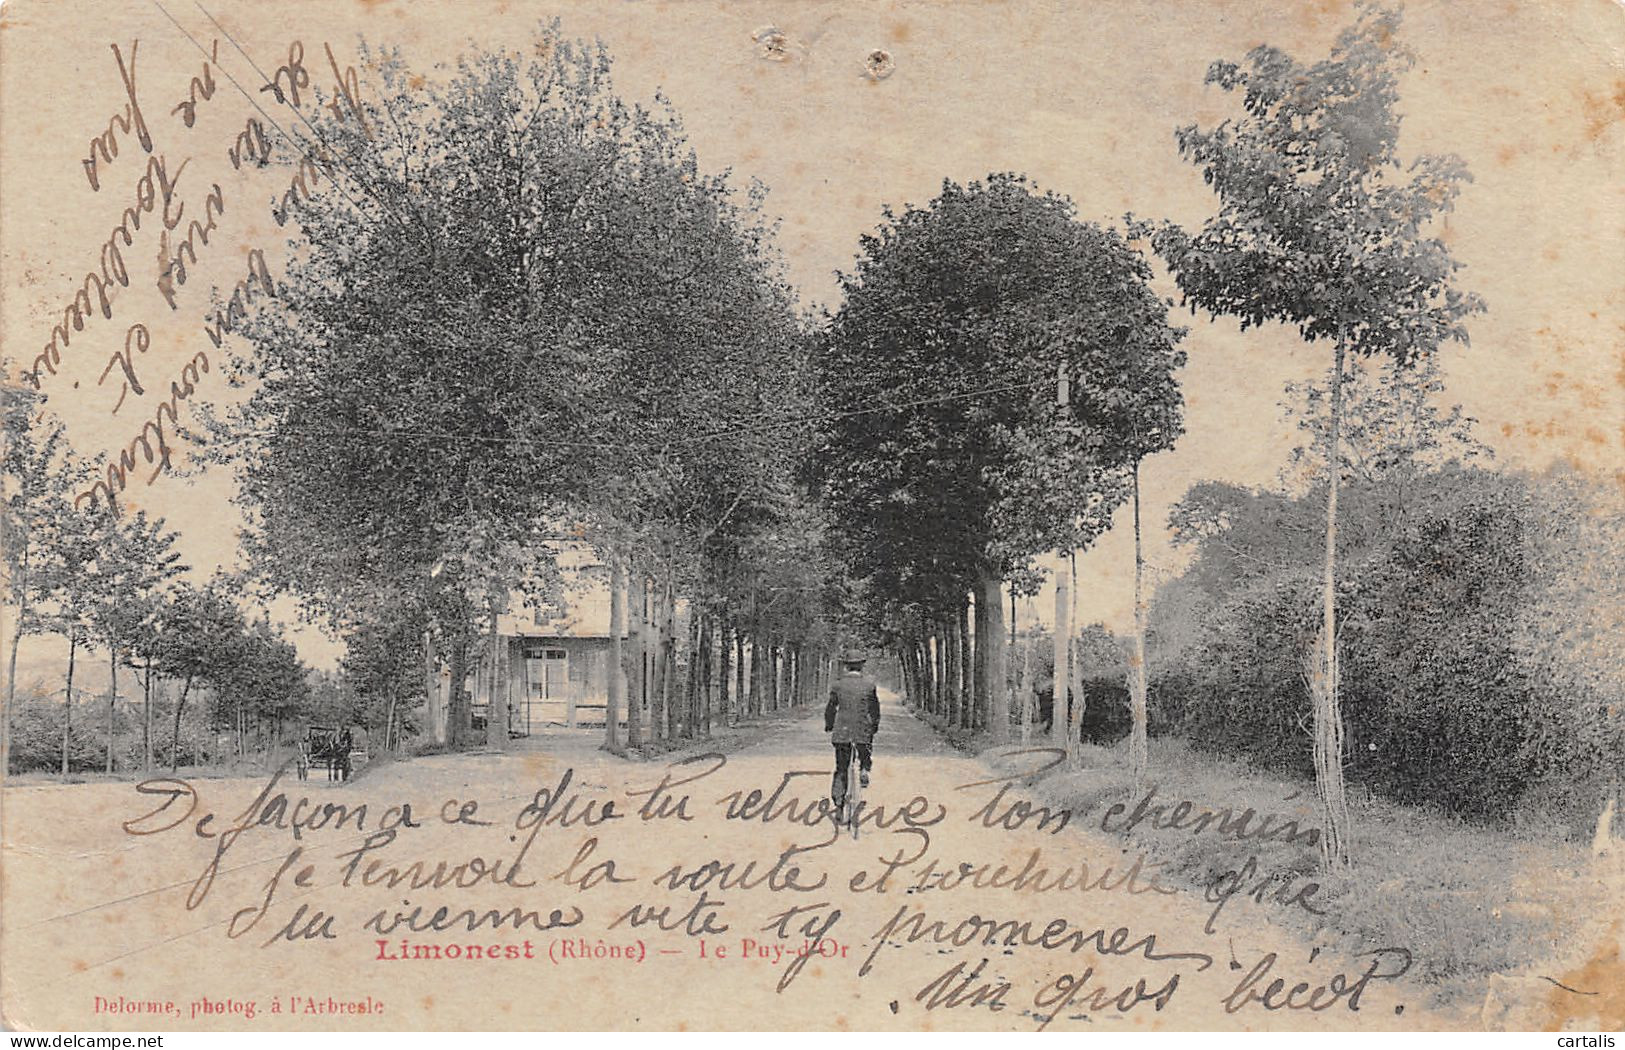 Je suis
bien contente
de tes
vues et
ne pas
De façon a ce que tu retrouve ton chemin
Je t'envoie la route et souhaite que
tu vienne vite t'y promener
Un gros bécot.
Limonest (Rhône) — Le Puy-d'Or
Delorme, photog. à l'Arbresle
delcampe.net
cartalis